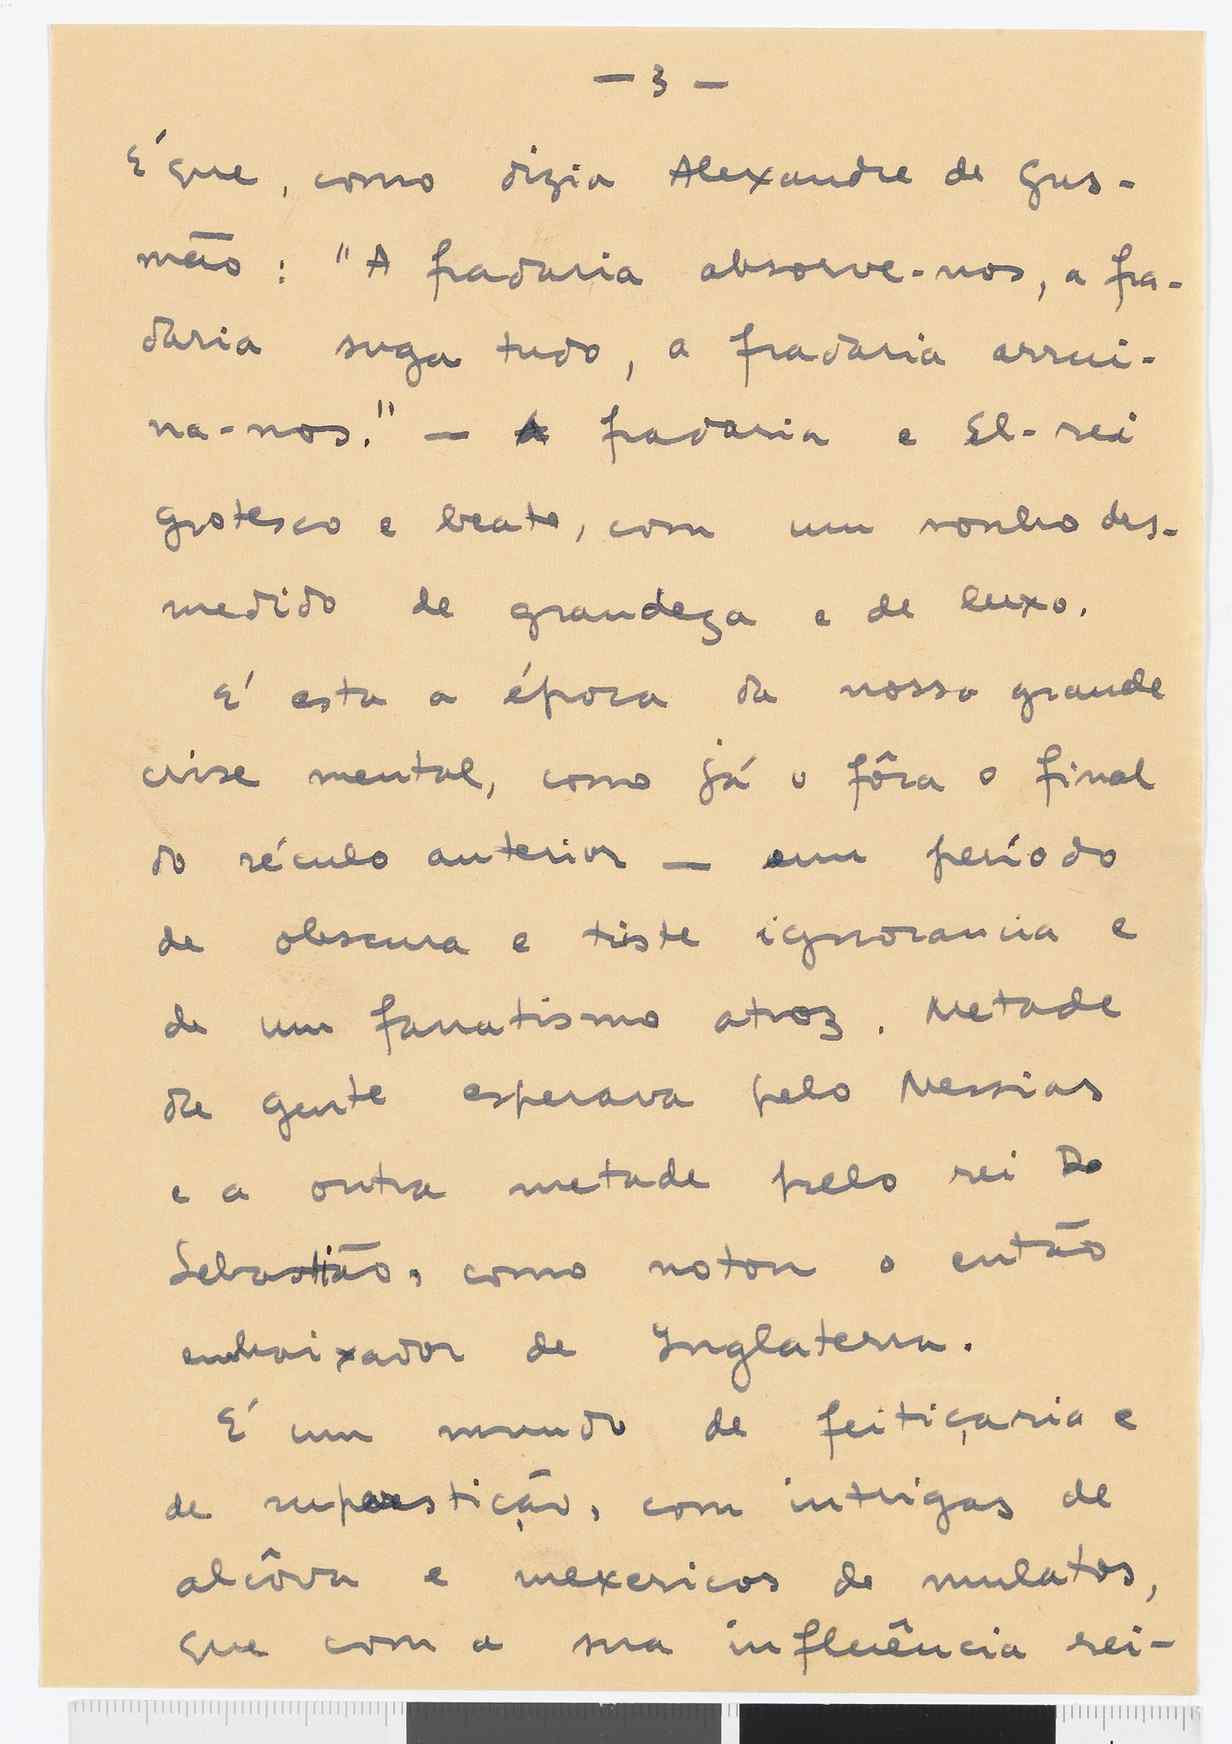 — 3 —
É que, como dizia Alexandre de Gus-
mão : "A fradaria absorve-nos, a fra-
daria suga tudo, a fradaria arrui-
na-nos." — A fradaria e El-rei
grotesco e beato, com um sonho des-
medido de grandeza e de luxo.
É esta a época da nossa grande
crise mental, como já o fôra o final
do século anterior — um período
de obscura e triste ignorancia e
de um fanatismo atroz. Metade
da gente esperava pelo Messias
e a outra metade pelo rei Do
Sebastião, como notou o então
embaixador de Inglaterra.
É um mundo de feitiçaria e
de superstição, com intrigas de
alcôva e mexericos de mulatos,
que com a sua influência rei-